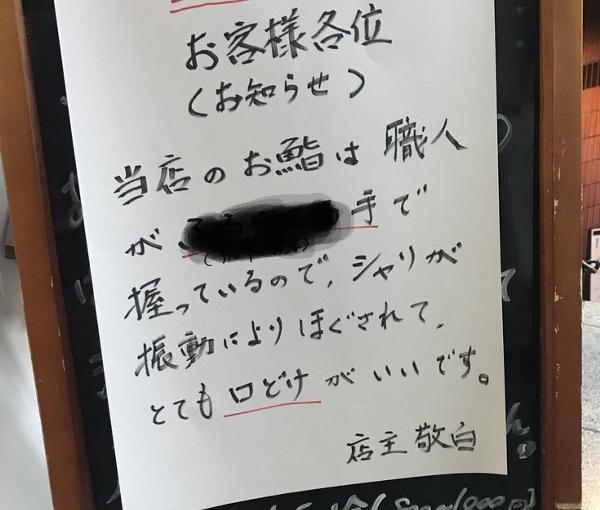 お客様各位
(お知らせ)
当店のお鮨は 職人
が 手で
握っているので、シャリが
振動によりほぐされて、
とても口どけがいいです。
店主 敬白